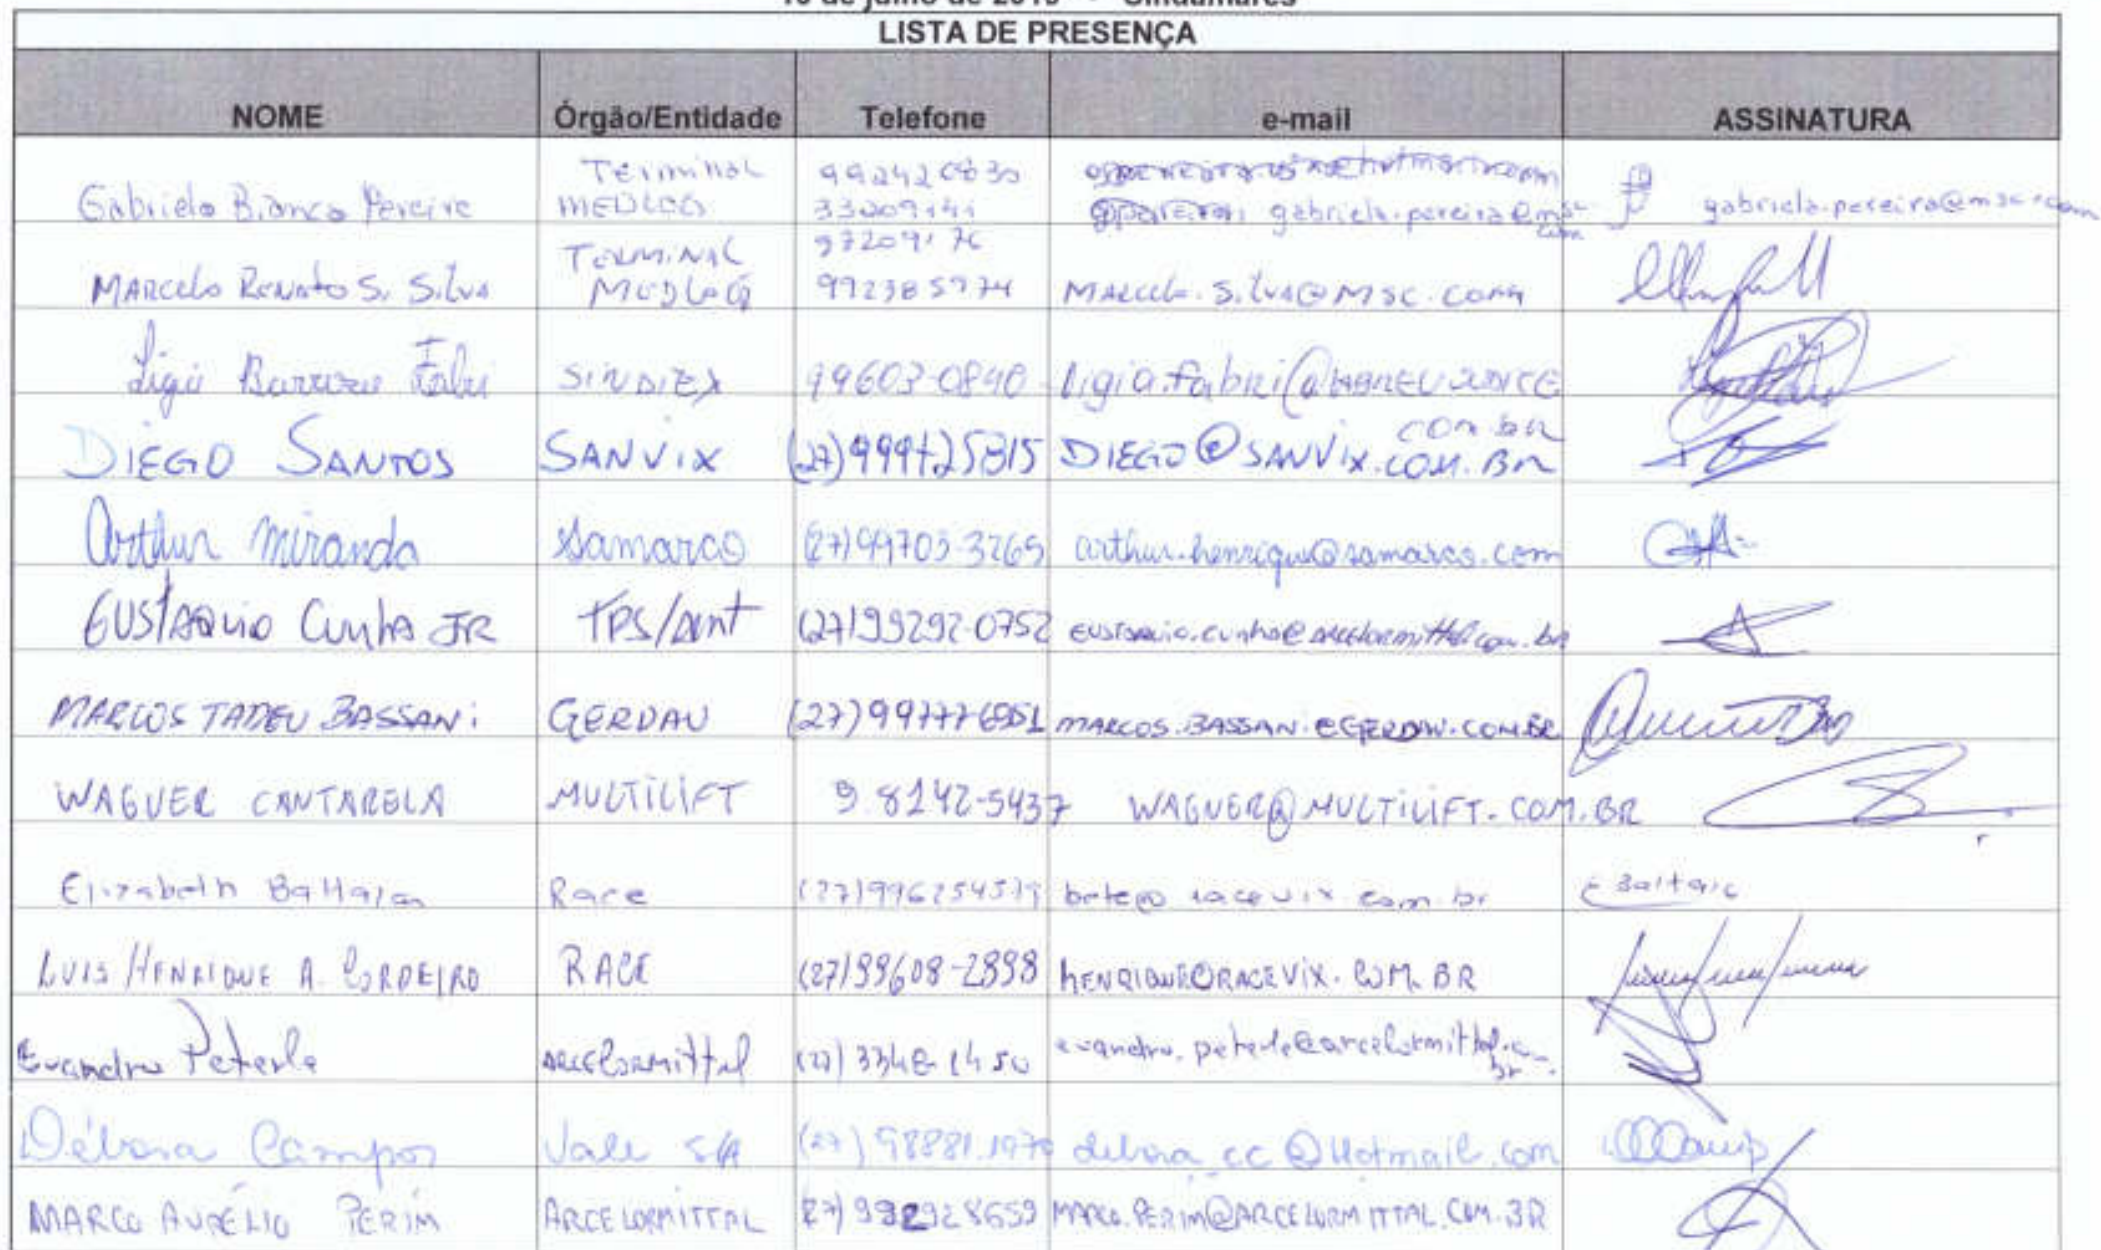 LISTA DE PRESENÇA
NOME Órgão/Entidade Telefone e-mail ASSINATURA
Gabriela Bianca Pereira Terminal MEDLOG 992420830 gabriela.pereira@msc.com gabriela.pereira@msc.com
MARCELO RENATO S. SILVA TERMINAL MEDLOG 992385974 MARCELO.SILVA@MSC.COM
Ligia Barroso Fabri SINDIEX 99603-0840 ligia.fabri@ABREUJUDICE COM BR
DIEGO SANTOS SANVIX (27) DIEGO@SANVIX.COM.BR
Arthur Miranda Samarco (27)99703-3265 arthur.henrique@samarco.com
EUSTAQUIO Cunha JR TPS/AMT (27)99292-0752 eustaquio.cunha@arcelormittal.com.br
MARCOS TADEU BASSANI GERDAU (27) MARCOS.BASSANI@GERDAU.COM.BR
WAGUER CANTARELA MULTILIFT 9.8142-5437 WAGUER@MULTILIFT.COM.BR
Elizabeth Race
LUIS HENRIQUE A. CORDEIRO RACE (27)99608-2898 HENRIQUE@RACEVIX.COM.BR
Evandro Peterle ARCELORMittal (27) 3348-1450 evandro.peterle@arcelormittal.com.br
Débora Campos Vale S/A (27) 98881.1970 debora_cc@Hotmail.com
MARCO AURÉLIO PERIM ARCELORMITTAL (27) 992928659 MARCO.PERIM@ARCELORMITTAL.COM.BR